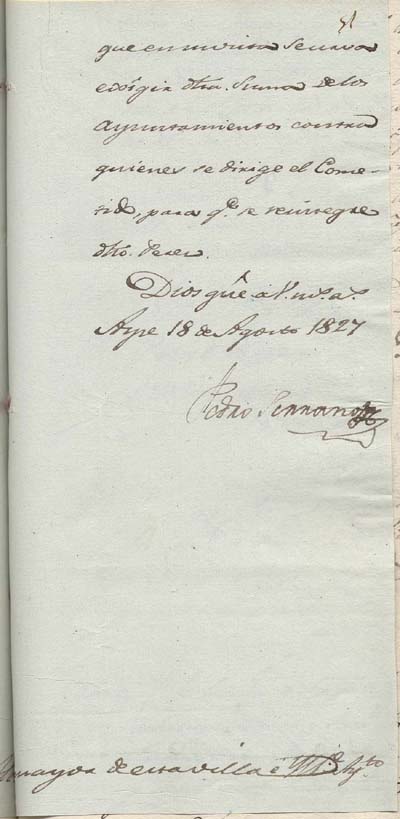 51
que en su vista se sirva
exôgir dha. Suma de los
Ayuntamientos contra
quienes se dirige el Come-
tido, para qe. se reintegre
dho.
Dios gûe. á V. ms. as.
Aspe 18 de Agosto 1827
Pedro Serrano
mayor de esta villa é Ayto